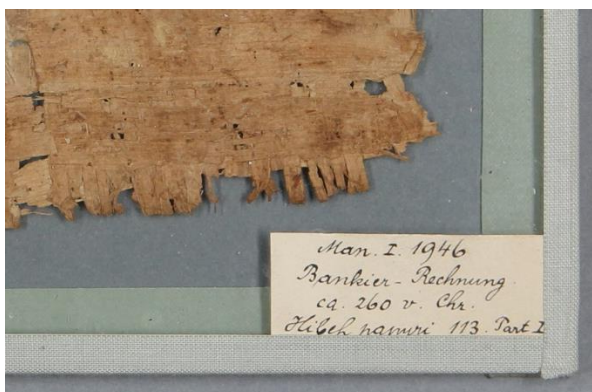 Man. I. 1946
Bankier-Rechnung.
ca. 260 v. Chr.
Hibeh papyri 113. Part I